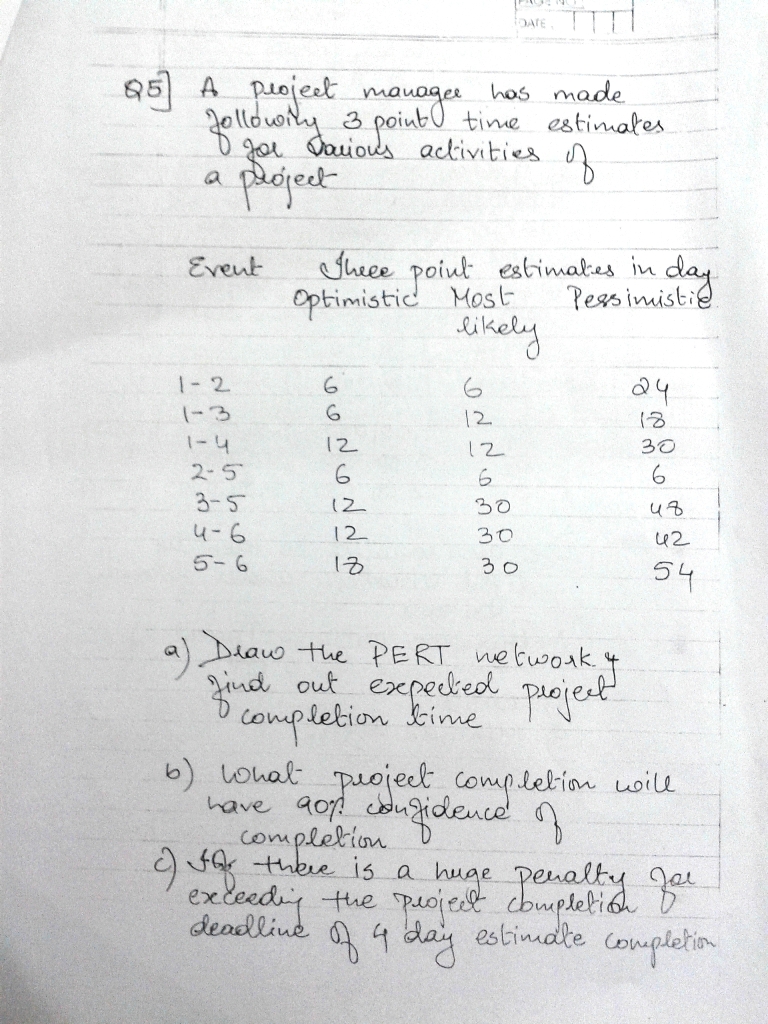 PAGE NO
DATE
Q5] A project manager has made
following 3 point time estimates
for various activities of
a project
Event Three point estimates in day
Optimistic Most Pessimistic
likely
1-2 6 6 24
1-3 6 12 18
1-4 12 12 30
2-5 6 6 6
3-5 12 30 48
4-6 12 30 42
5-6 18 30 54
a) Draw the PERT network &
find out expected project
completion time
b) What project completion will
have 90% confidence of
completion
c) If there is a huge penalty for
exceeding the project completion
deadline of 4 day estimate completion